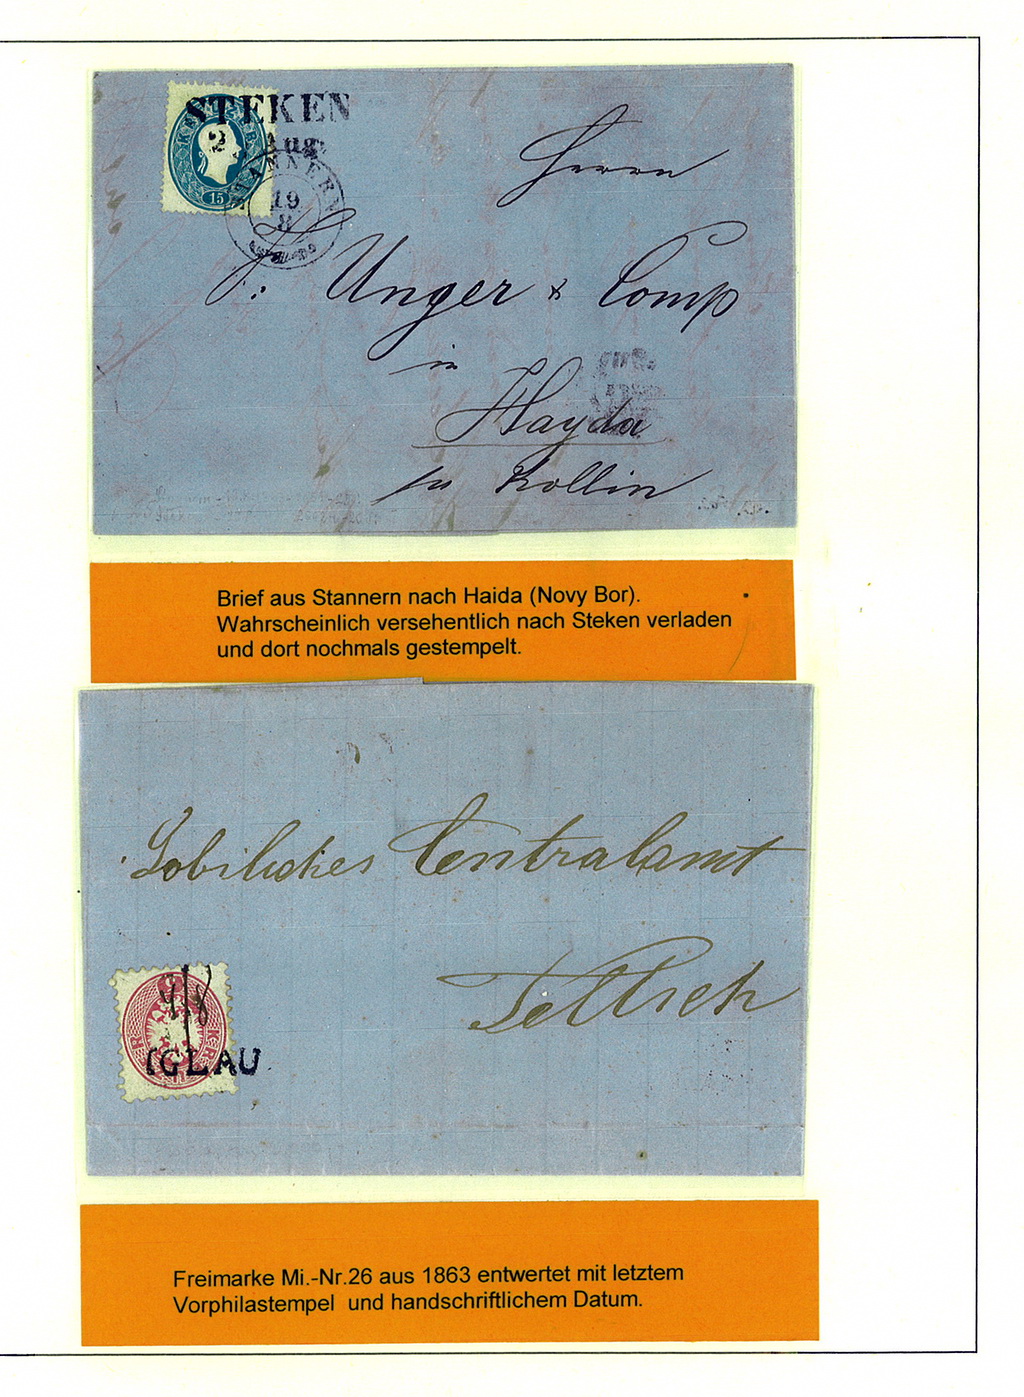 STEKEN
2 Aug:
STANNERN
19
8
15
Herrn
J: Unger & Comp
in
Hayda
pr Kollin
Brief aus Stannern nach Haida (Novy Bor).
Wahrscheinlich versehentlich nach Steken verladen
und dort nochmals gestempelt.
Löbliches Centralamt
Teltsch
5
IGLAU
Freimarke Mi.-Nr.26 aus 1863 entwertet mit letztem
Vorphilastempel und handschriftlichem Datum.